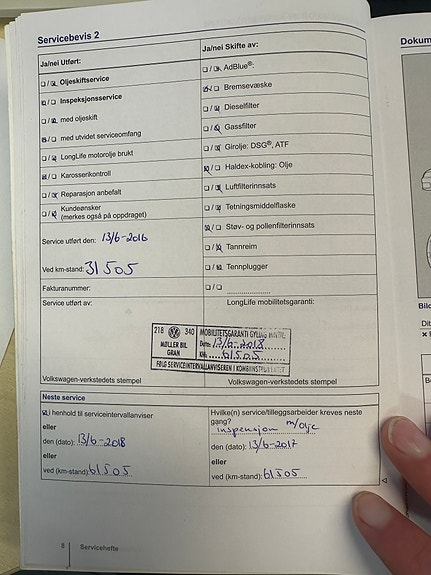 Servicebevis 2
Dokum
Ja/nei Utført:
Ja/nei Skifte av:
Oljeskiftservice
AdBlue®:
Inspeksjonsservice
Bremsevæske
med oljeskift
Dieselfilter
med utvidet serviceomfang
Gassfilter
LongLife motorolje brukt
Girolje: DSG®, ATF
Karosserikontroll
Haldex-kobling: Olje
Reparasjon anbefalt
Luftfilterinnsats
Kundeønsker
(merkes også på oppdraget)
Tetningsmiddelflaske
Støv- og pollenfilterinnsats
Service utført den: 13/6-2016
Tannreim
Ved km-stand: 31505
Tennplugger
Fakturanummer:
Service utført av:
LongLife mobilitetsgaranti:
218 340
MØLLER BIL
GRAN
MOBILITETSGARANTI GYLDIG INNTIL:
Dato: 13/6-2018
KM: 61505
FØLG SERVICEINTERVALLANVISEREN I KOMBIINSTRUMENTET
Volkswagen-verkstedets stempel
Volkswagen-verkstedets stempel
Neste service
I henhold til serviceintervallanviser
eller
den (dato): 13/6-2018
eller
ved (km-stand): 61505
Hvilke(n) service/tilleggsarbeider kreves neste
gang? inspensjon m/olje
den (dato): 13/6-2017
eller
ved (km-stand): 61505
8 Servicehefte
Bild